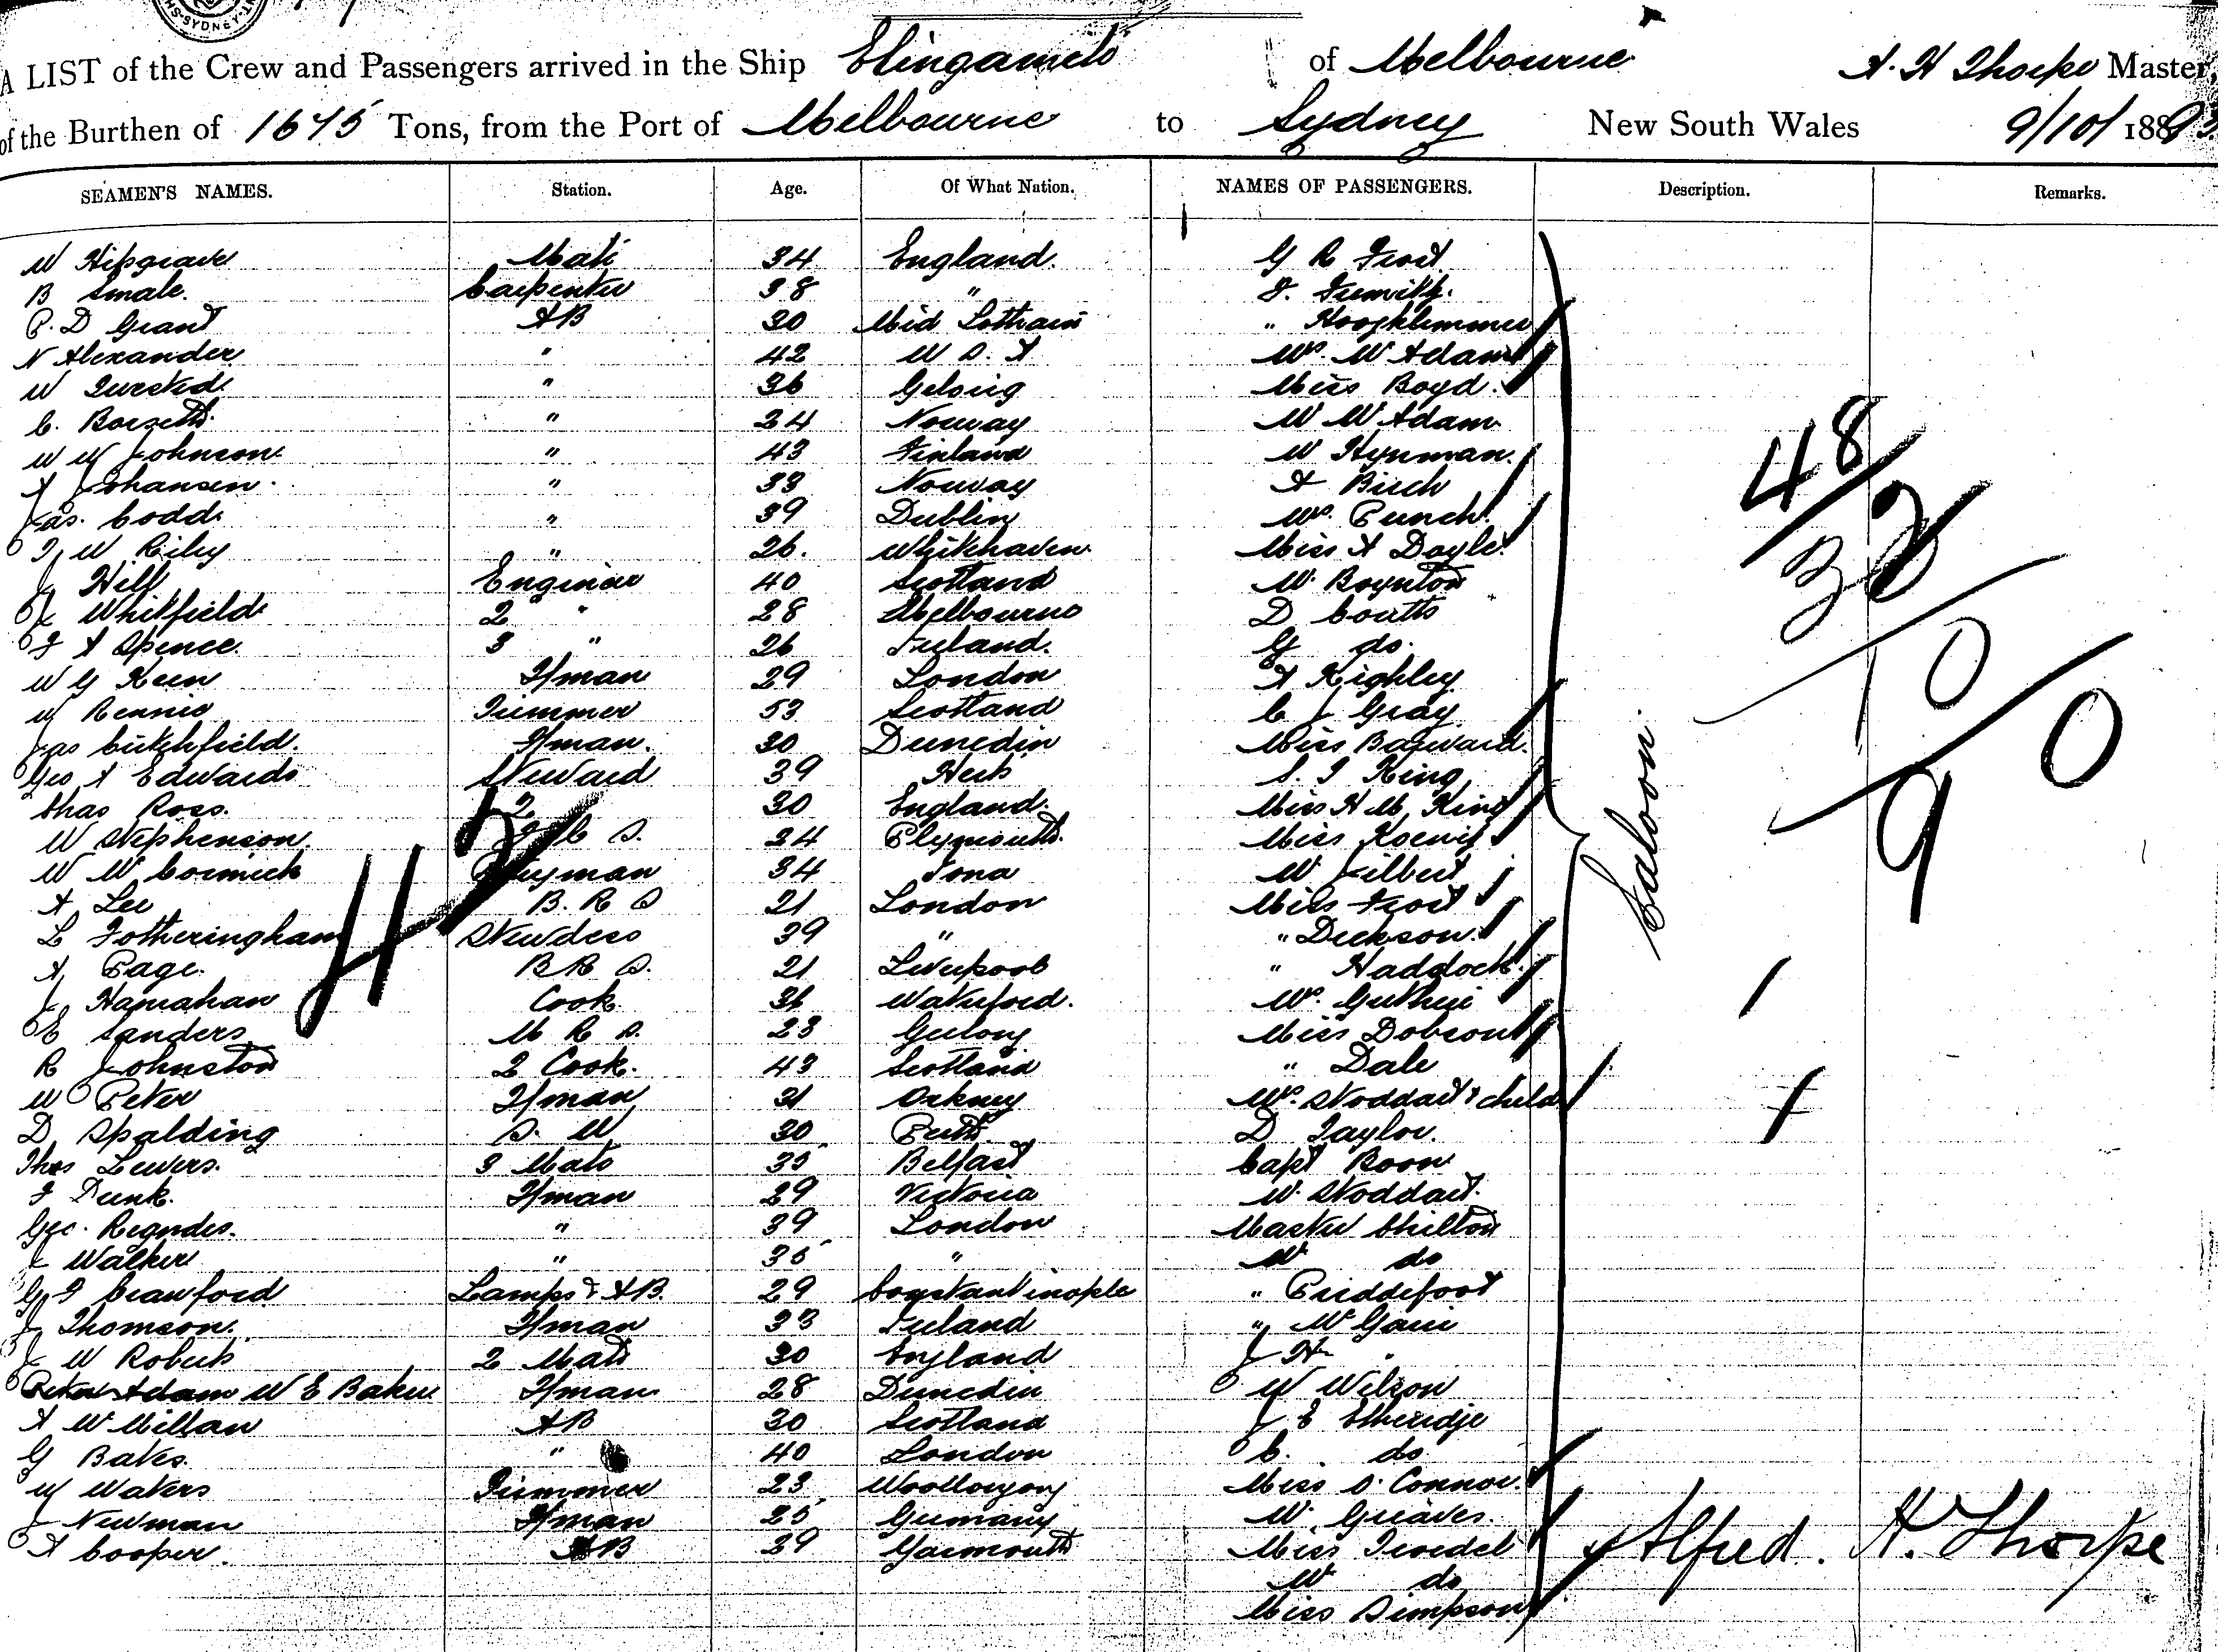 SYDNEY
A LIST of the Crew and Passengers arrived in the Ship Elingamite of Melbourne A. H Thorpe Master,
of the Burthen of 1675 Tons, from the Port of Melbourne to Sydney New South Wales 9/10/1893
SEAMEN'S NAMES. Station. Age. Of What Nation. NAMES OF PASSENGERS. Description. Remarks.
W Hipgrave Mate 34 England. G R Frost
B Smale. Carpenter 38 " F.
P. D Grant AB 30 Mid Lothain "
N Alexander " 42 U S. A Mrs. W Adams
W " 36 Miss Boyd.
C. " 24 Norway W W Adam
W W Johnson " 43 Finland W Hynman.
A Johansen. " 33 Norway A Birch
Jas. Codd. " 39 Dublin Mrs. Punch.
T W Riley " 26. Whitehaven Miss A Doyle.
J Hill Engineer 40 Scotland W. Boynton
J Whitfield 2 " 28 Melbourne D Coutts
J A Spence. 3 " 26 Ireland. G do.
W G Keen F/man 29 London A Kighley
W Rennie Trimmer 53 Scotland C J Gray
Jas Cutchfield. F/man. 30 Dunedin Miss Bayward.
Geo A Edwards Steward 39 Herts S. T King
Chas Ross. 2 30 England. Miss H M King
W Stephenson. S. 24 Plymouth. Miss Koenig
W McCormick 34 Iona W Filbert
A Lee B. R S 21 London Miss Frost
L Fotheringham Stewdess 39 " " Dickson.
A Page. B R S. 21 Liverpool " Haddock.
J Hanrahan Cook 36 Waterford. Mrs. Guthrie
E Sanders M R S. 23 Geelong Miss Dobson
R Johnston 2 Cook. 43 Scotland " Dale
W Peter F/man 31 Orkney Mrs. Stoddart & child
D Spalding S. W 30 Perth D Taylor.
Thos Lewers. 3 Mate 35 Belfast Capt Boon
F Dunk. F/man 29 Victoria W. Stoddart.
Geo. " 39 London Master Chilton
J Walker " 35 " M do
G F Crawford Lamps & AB. 29 Constantinople " Priddefoot
J Thomson. F/man 33 Ireland " McGain
J W Roberts 2 Mate 30 England J H "
Peter Adam W E Baker F/man 28 Dunedin W Wilson
A McMillan AB 30 Scotland J E Etheridje
G Bates. " 40 London C. do
W Waters Trimmer 23 Woollongong Miss O'Connor.
J Newman F/man 25 Germany W. Greaves.
A Cooper. AB 29 Yarmouth Miss Troedel
M do
Miss Simpson
42
Saloon.
48
32
10
90
Alfred. H. Thorpe